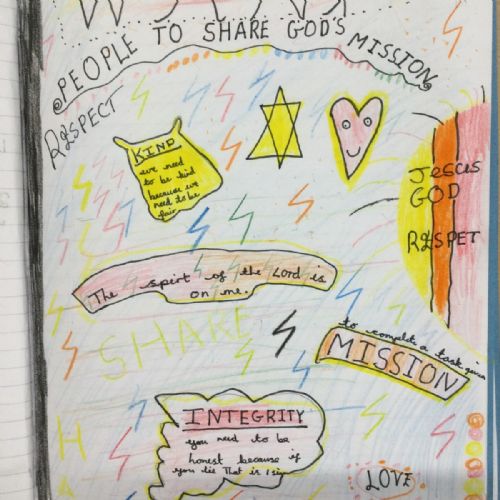 PEOPLE TO SHARE GOD'S MISSION
RESPECT
KIND
we need
to be kind
because we
need to be
fair
JESCUS
GOD
RESPET
The spirt of the Lord is
on me.
SHARE
to complite a task given
MISSION
INTEGRITY
you need to be
honest because if
you lie That is 1 sin
LOVE